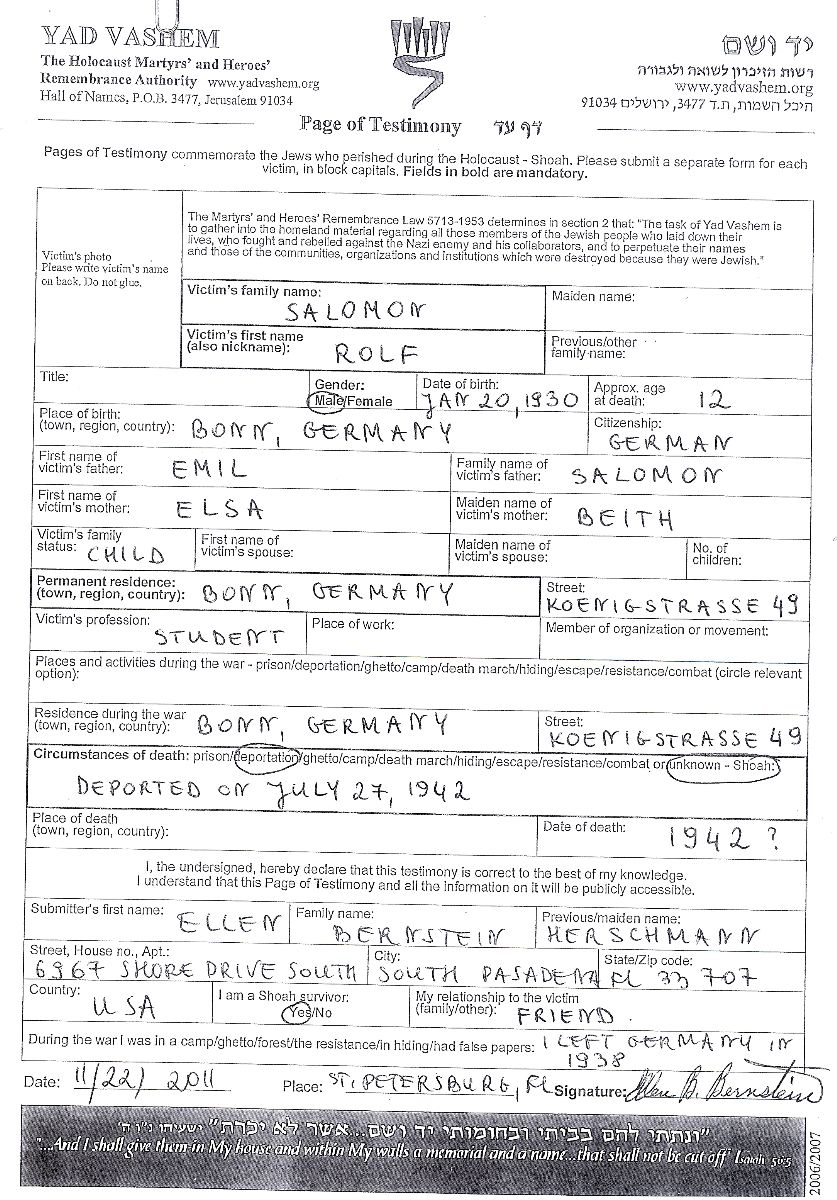 YAD VASHEM
The Holocaust Martyrs' and Heroes'
Remembrance Authority www.yadvashem.org
Hall of Names, P.O.B. 3477, Jerusalem 91034
יד ושם
רשות הזיכרון לשואה ולגבורה
www.yadvashem.org
היכל השמות, ת.ד 3477, ירושלים 91034
Page of Testimony דף עד
Pages of Testimony commemorate the Jews who perished during the Holocaust - Shoah. Please submit a separate form for each
victim, in block capitals. Fields in bold are mandatory.
Victim's photo
Please write victim's name
on back. Do not glue.
The Martyrs' and Heroes' Remembrance Law 5713-1953 determines in section 2 that: "The task of Yad Vashem is
to gather into the homeland material regarding all those members of the Jewish people who laid down their
lives, who fought and rebelled against the Nazi enemy and his collaborators, and to perpetuate their names
and those of the communities, organizations and institutions which were destroyed because they were Jewish."
Victim's family name: SALOMON
Maiden name:
Victim's first name (also nickname): ROLF
Previous/other family name:
Title:
Gender: Male/Female
Date of birth: JAN 20, 1930
Approx. age at death: 12
Place of birth: (town, region, country): BONN, GERMANY
Citizenship: GERMAN
First name of victim's father: EMIL
Family name of victim's father: SALOMON
First name of victim's mother: ELSA
Maiden name of victim's mother: BEITH
Victim's family status: CHILD
First name of victim's spouse:
Maiden name of victim's spouse:
No. of children:
Permanent residence: (town, region, country): BONN, GERMANY
Street: KOENIGSTRASSE 49
Victim's profession: STUDENT
Place of work:
Member of organization or movement:
Places and activities during the war - prison/deportation/ghetto/camp/death march/hiding/escape/resistance/combat (circle relevant
option):
Residence during the war (town, region, country): BONN, GERMANY
Street: KOENIGSTRASSE 49
Circumstances of death: prison/deportation/ghetto/camp/death march/hiding/escape/resistance/combat or unknown - Shoah:
DEPORTED ON JULY 27, 1942
Place of death (town, region, country):
Date of death: 1942 ?
I, the undersigned, hereby declare that this testimony is correct to the best of my knowledge.
I understand that this Page of Testimony and all the information on it will be publicly accessible.
Submitter's first name: ELLEN
Family name: BERNSTEIN
Previous/maiden name: HERSCHMANN
Street, House no., Apt.: 6967 SHORE DRIVE SOUTH
City: SOUTH PASADENA
State/Zip code: FL 33707
Country: USA
I am a Shoah survivor: Yes/No
My relationship to the victim (family/other): FRIEND.
During the war I was in a camp/ghetto/forest/the resistance/in hiding/had false papers: I LEFT GERMANY IN
1938
Date: 11/22/2011 Place: ST. PETERSBURG, FL Signature: Ellen B. Bernstein
"ונתתי להם בביתי ובחומותי יד ושם... אשר לא יכרת" ישעיהו נ"ו ה'
"...And I shall give them in My house and within My walls a memorial and a name...that shall not be cut off" Isaiah 56:5
2006/2007